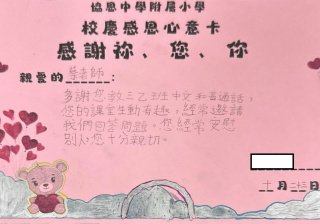 協恩中學附属小學
校慶感恩心意卡
感謝祢、您、你
親愛的 老師：
多謝您教三乙班中文和普通話，
您的課堂生動有趣，經常邀請
我們回答問題。您經常安慰
別人，您十分親切。
十月二十三日